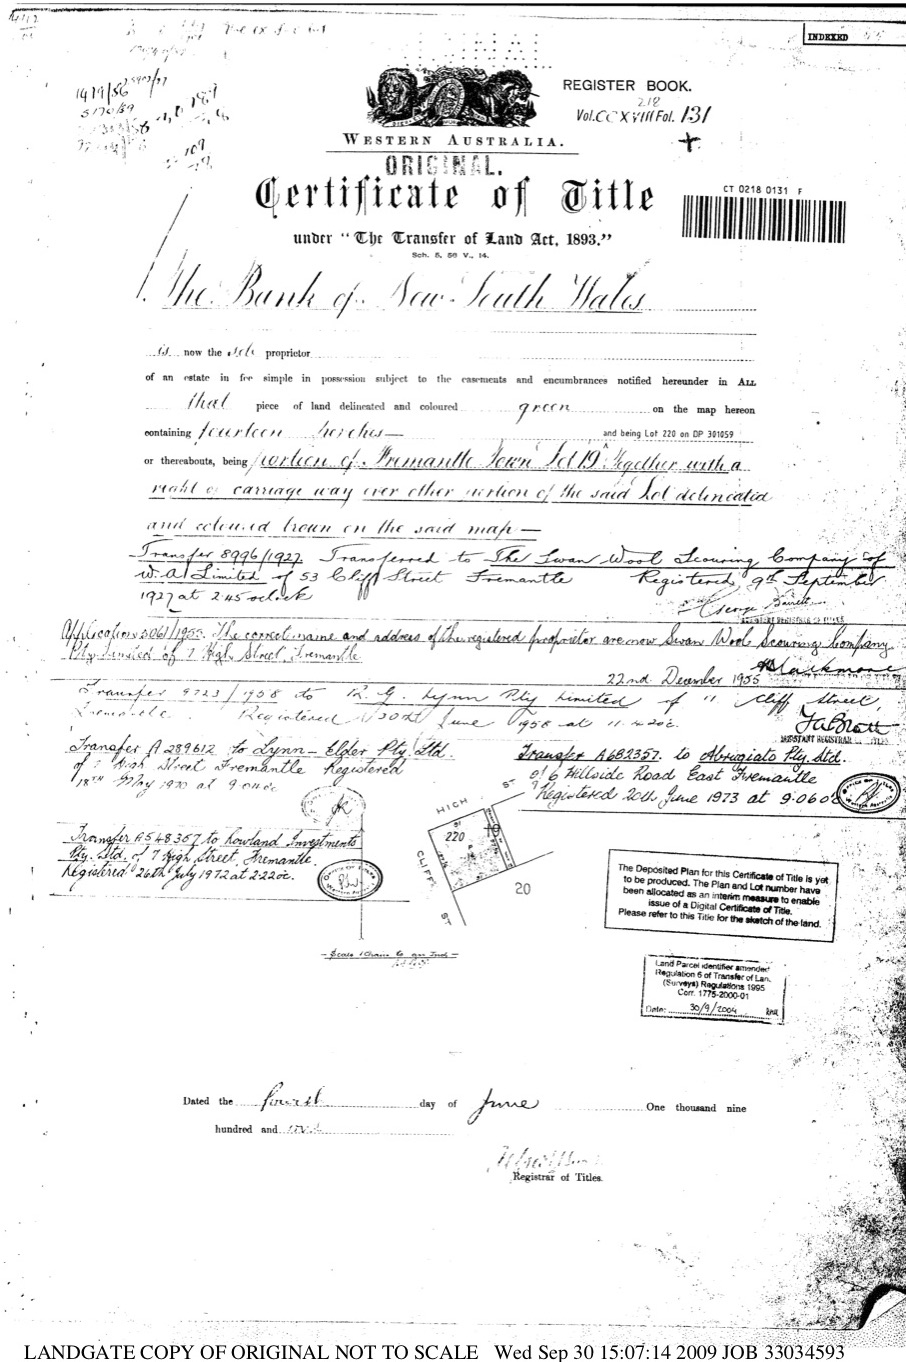 INDEXED
REGISTER BOOK.
218
Vol. CCXVIII Fol. 131
1419/56
5170/59
109
WESTERN AUSTRALIA.
ORIGINAL.
Certificate of Title
CT 0218 0131 F
under "The Transfer of Land Act, 1893."
Sch. 5, 56 V., 14.
The Bank of New South Wales
is now the sole proprietor
of an estate in fee simple in possession subject to the easements and encumbrances notified hereunder in ALL
that piece of land delineated and coloured green on the map hereon
containing fourteen perches— and being Lot 220 on DP 301059
or thereabouts, being portion of Fremantle Town Lot 19 Together with a
right of carriage way over other portion of the said Lot delineated
and coloured brown on the said map—
Transfer 8996/1927. Transferred to The Swan Wool Scouring Company of
W.A. Limited of 53 Cliff Street Fremantle Registered 9th September
1927 at 2.45 oclock
George
Application 5061/1955. The correct name and address of the registered proprietor are now Swan Wool Scouring Company
Pty. Limited of 7 High Street, Fremantle
22nd December 1955
Transfer 9723/1958 to R. G. Lynn Pty Limited of 11 Cliff Street,
Fremantle. Registered June 1958 at 11.42 oc.
ASSISTANT REGISTRAR OF TITLES
Transfer A289612 to Lynn-Elder Pty. Ltd.
of 7 High Street Fremantle Registered
18TH May 1970 at 9.0 oc
Transfer A548367 to Rowland Investments
Pty. Ltd. of 7 High Street, Fremantle.
Registered 26th July 1972 at 2.22 oc.
Transfer A682357. to Abrugiato Pty. Ltd.
of 6 Hillside Road East Fremantle
Registered 20th June 1973 at 9.06 oc
HIGH ST
220
19
CLIFF ST
20
— Scale 1 Chain to an Inch —
The Deposited Plan for this Certificate of Title is yet
to be produced. The Plan and Lot number have
been allocated as an interim measure to enable
issue of a Digital Certificate of Title.
Please refer to this Title for the sketch of the land.
Land Parcel identifier amended
Regulation 6 of Transfer of Lan.
(Surveys) Regulations 1995
Corr. 1775-2000-01
Date: 30/9/2004
Dated the fourth day of June One thousand nine
hundred and two
Registrar of Titles.
LANDGATE COPY OF ORIGINAL NOT TO SCALE Wed Sep 30 15:07:14 2009 JOB 33034593